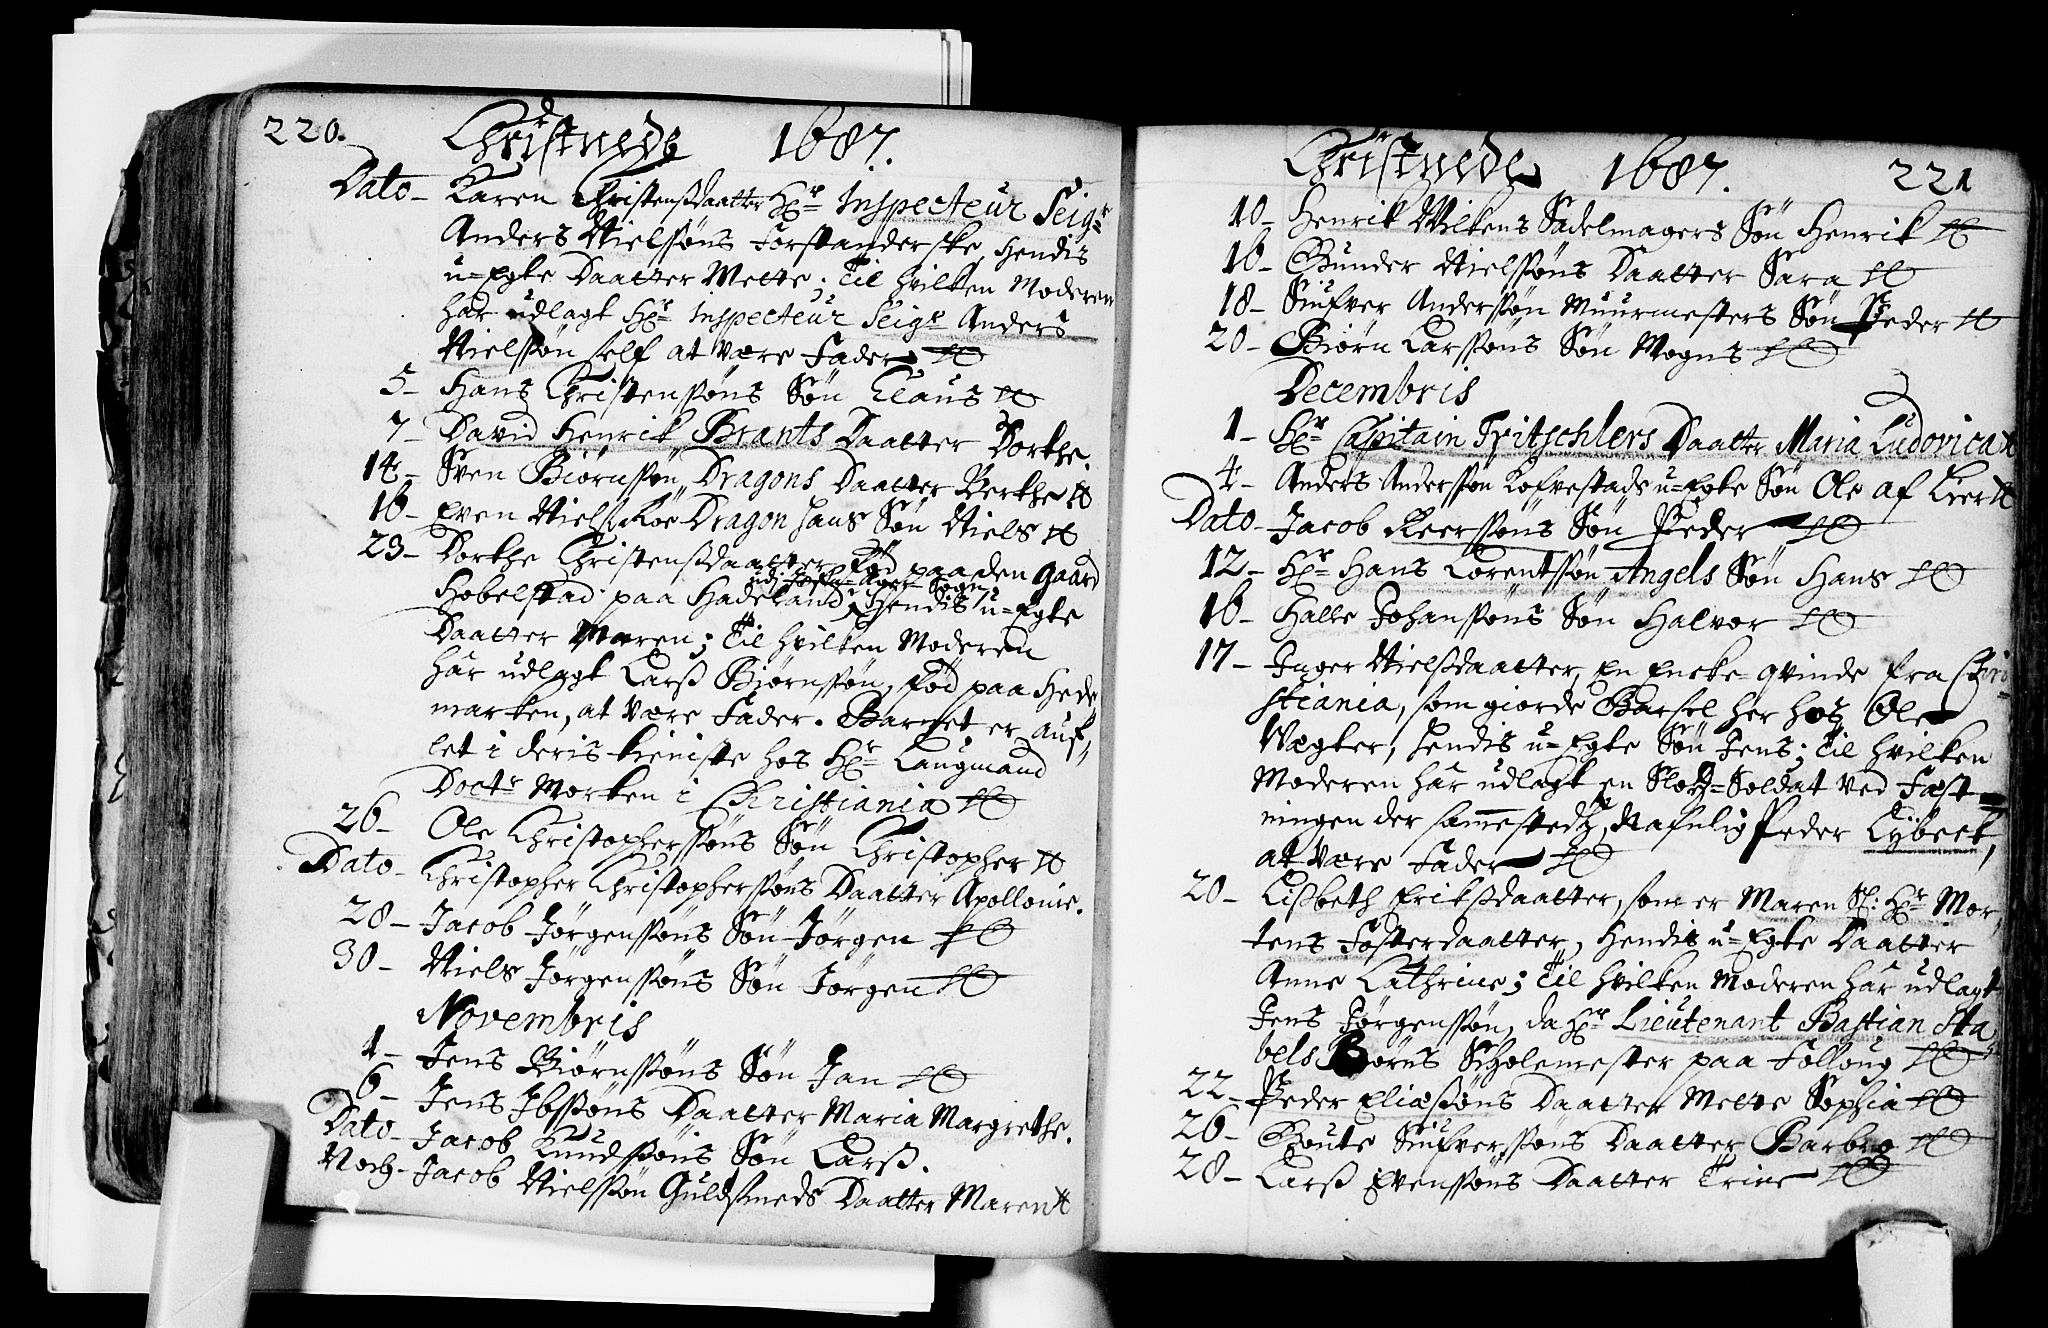 220.
Christnede 1687.
Dato - Karen Christensdaatter Hr Inspecteur Seigr
Anders Nielssøns Forstanderske, Hendis
u=Egte Daatter Mette; Til hvilken Moderen
har udlagt Hr Inspecteur Seigr Anders
Nielssøn self at være Fader.
5 - Hans Christenssøns Søn Claus
7 - David Henrik Brants Daatter Dorthe.
14 - Sven Biørnssøn Dragons Daatter Berthe
16 - Even Nielss: Roe Dragon hans Søn Niels
23 - Dorthe Christensdaatter, fød paa den Gaard
Hobelstad paa Hadeland, Hendis u=Egte
Daatter Maren; Til hvilken Moderen
har udlagt Larss Biørnssøn, fød paa Hede
marken, at være Fader. Barnet er auf
let i deris tieniste hos Hr Laugmand
Doctr Morken i Christiania
26 - Ole Christopherssøns Søn Christopher
Dato - Christopher Christopherssøns Daatter Apollonie.
28 - Jacob Jørgenssøns Søn Jørgen
30 - Niels Jørgenssøns Søn Jørgen
Novembris
1 - Jens Biørnssøns Søn Jan
6 - Jens Ibssøns Daatter Maria Margrethe.
Dato - Jacob Knudssøns Søn Larss.
Noch - Jacob Nielssøn Guldsmeds Daatter Maren
Christnede 1687. 221
10 - Henrik Wilkens Sadelmagers Søn Henrik
16 - Gunder Nielssøns Daatter Sara
18 - Siufver Anderssøn Muurmesters Søn Peder
20 - Biørn Larssøns Søn Mogns
Decembris
1 - Hr Capitain Fritschlers Daatter Maria Ludovica
4 - Anders Anderssøn Lofvestads u=Egte Søn Ole af Lier
Dato - Jacob Reerssøns Søn Peder
12 - Hr Hans Lorentssøn Angels Søn Hans
16 - Halle Johanssøns Søn Halvor
17 - Inger Nielssdaatter, en Encke=qvinde fra Chri-
stiania, som giorde Barsel her hos Ole
Vegter, hendis u=Egte Søn Jens; Til hvilken
Moderen har udlagt en Slotz=Soldat ved Fæst=
ningen der sammestedtz, Nafnlig Peder Lybeck,
at være Fader
20 - Lissbeth Eriksdaatter, som er Maren Sl: Hr Mor
tens Fosterdaatter, Hendis u=Egte Daatter
Anne Cathrine; Til hvilken Moderen har udlagt
Jens Jørgenssøn, da Hr Lieutenant Bastian Sta
bels Børns Skolemester paa Folloug
22 - Peder Eliassøns Daatter Mette Sophia
26 - Goute Siufverssøns Daatter Barbro
28 - Larss Evenssøns Daatter Trine